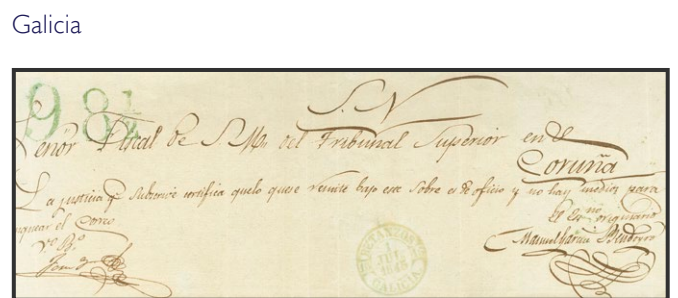 Galicia
9 8½
S. N.
Señor Fiscal de S. M. del Tribunal Superior en la
Coruña
La justicia q.e subscrive certifica que lo que se remite bajo este sobre es de oficio y no hay medios para
franquear el Correo
El Es.no originario
V.o B.o
Manuel García
BETANZOS
1
1845
GALICIA